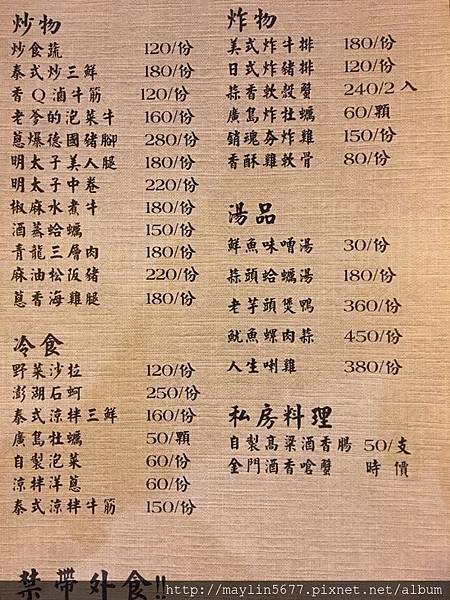 炒物
炒食蔬 120/份
泰式炒三鮮 180/份
香Q滷牛筋 120/份
老爹的泡菜牛 160/份
蔥爆德國豬腳 280/份
明太子美人腿 180/份
明太子中卷 220/份
椒麻水煮牛 180/份
酒蒸蛤蠣 150/份
青龍三層肉 180/份
麻油松阪豬 220/份
蔥香海雞腿 180/份
冷食
野菜沙拉 120/份
澎湖石蚵 250/份
泰式涼拌三鮮 160/份
廣島牡蠣 50/顆
自製泡菜 60/份
涼拌洋蔥 60/份
泰式涼拌牛筋 150/份
炸物
美式炸牛排 180/份
日式炸豬排 120/份
蒜香軟殼蟹 240/2入
廣島炸牡蠣 60/顆
銷魂夯炸雞 150/份
香酥雞軟骨 80/份
湯品
鮮魚味噌湯 30/份
蒜頭蛤蠣湯 180/份
老芋頭煲鴨 360/份
魷魚螺肉蒜 450/份
人生唎雞 380/份
私房料理
自製高粱酒香腸 50/支
金門酒香嗆蟹 時價
禁帶外食!!
http://maylin5677.pixnet.net/album